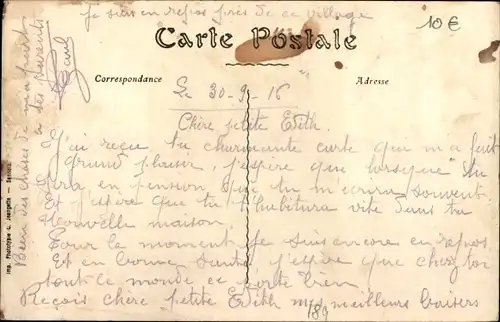 Je suis en repos près de ce village
10€
Carte Postale
Correspondance
Adresse
Le 30-9-16
Chère petite Edith.
J'ai reçu ta charmante carte qui m'a fait
grand plaisir, j'espère que lorsque tu
sera en pension que tu m'ecrira souvent.
Et j'espère que tu t'habitura vite dans ta
Nouvelle maison
Pour le moment je suis encore en repos
Et en bonne santé j'espère que chez toi
tout le monde se porte bien
Reçois chère petite Edith mes meilleurs baisers
189
Bien des choses de ma part
a tes parents
Imp. Phototypie